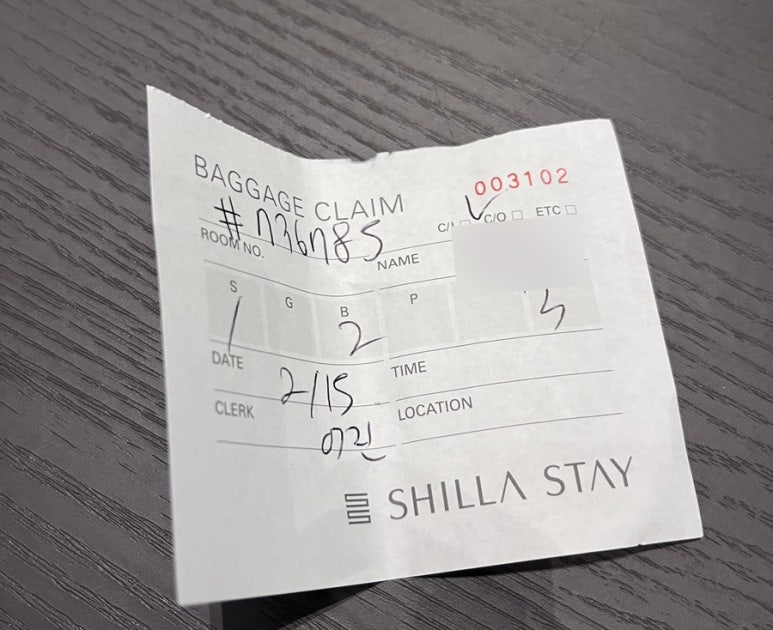 BAGGAGE CLAIM
003102
C/I ☐ C/O ☐ ETC ☐
#736785
ROOM NO.
NAME
S G B P
1 2 3
DATE 2/15 TIME
CLERK LOCATION
SHILLA STAY